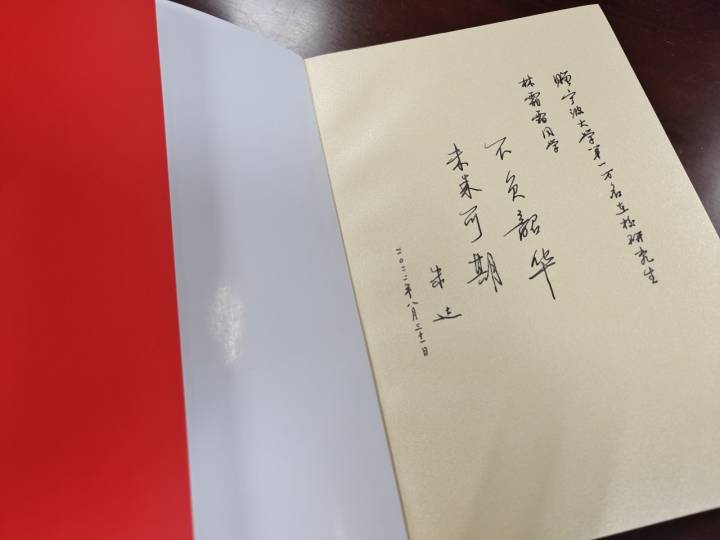 赐宁波大学第一万名在校研究生
林霜霜同学
不负韶华
未来可期
朱达
二〇二二年八月三十一日